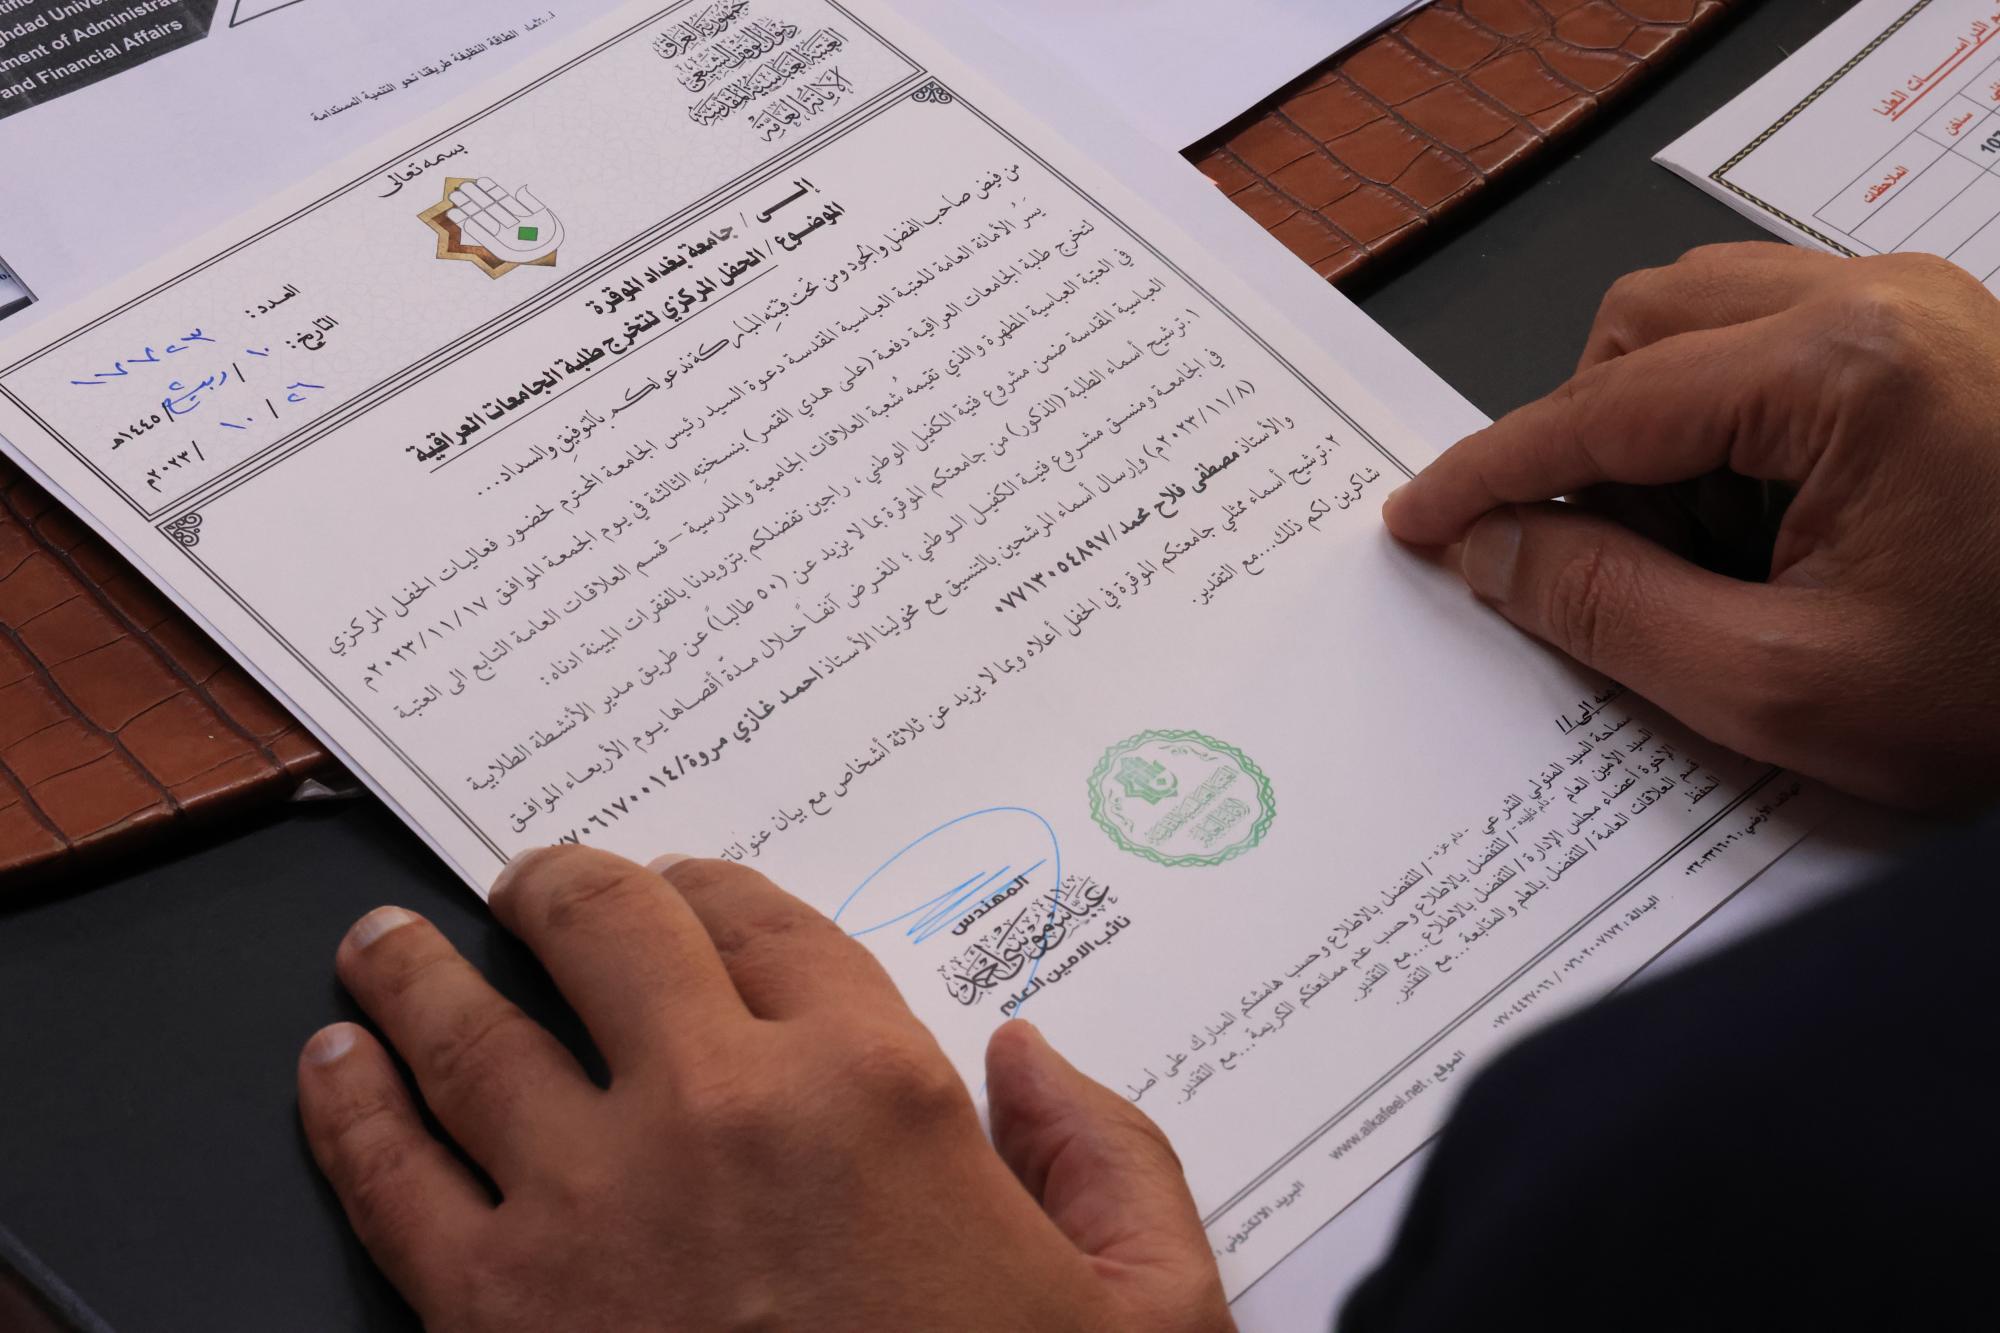 ghdad Unive
tment of Administrat
and Financial Affairs
الطاقة النظيفة طريقنا نحو التنمية المستدامة
جمهورية العراق
ديوان الوقف الشيعي
العتبة العباسية المقدسة
الأمانة العامة
بسمه تعالى
العدد:
التأريخ: ١٠ / ربيع / ١٤٤٥هـ
٢٦ / ١٠ / ٢٠٢٣م
إلـــى / جامعة بغداد الموقرة
الموضوع / الحفل المركزي لتخرج طلبة الجامعات العراقية
من فيض صاحب الفضل والجود ومن تحت قبته المباركة ندعو لكم بالتوفيق والسداد...
يسرُ الأمانة العامة للعتبة العباسية المقدسة دعوة السيد رئيس الجامعة المحترم لحضور فعاليات الحفل المركزي
لتخرج طلبة الجامعات العراقية دفعة (على هدي القمر) بنسختِهِ الثالثة في يوم الجمعة الموافق ٢٠٢٣/١١/١٧م
في العتبة العباسية المطهرة والذي تقيمه شُعبة العلاقات الجامعية والمدرسية – قسم العلاقات العامة التابع الى العتبة
العباسية المقدسة ضمن مشروع فتية الكفيل الوطني، راجين تفضلكم بتزويدنا بالفقرات المبينة ادناه:
١.ترشيح أسماء الطلبة (الذكور) من جامعتكم الموقرة بما لا يزيد عن (٥٠ طالباً) عن طريق مدير الأنشطة الطلابية
في الجامعة ومنسق مشروع فتية الكفيل الوطني ؛ للغرض آنفاً خلال مدّة أقصاها يوم الأربعاء الموافق
(٢٠٢٣/١١/٨م) وإرسال أسماء المرشحين بالتنسيق مع مخولينا الأستاذ احمد غازي مروة/٧٧٠٦١٧٠٠١٤
والأستاذ مصطفى فلاح محمد/٠٧٧١٣٠٥٤٨٩٧
٢.ترشيح أسماء ممثلي جامعتكم الموقرة في الحفل أعلاه وبما لا يزيد عن ثلاثة أشخاص مع بيان
شاكرين لكم ذلك...مع التقدير.
المهندس
عباس موسى أحمد
نائب الامين العام
إلى //
سماحة السيد المتولي الشرعي - دام عزه - / للتفضل بالاطلاع وحسب هامشكم المبارك على اصل
السيد الأمين العام - دام تأييده - / للتفضل بالاطلاع وحسب عدم ممانعتكم الكريمة...مع التقدير.
الإخوة أعضاء مجلس الإدارة / للتفضل بالاطلاع...مع التقدير.
قسم العلاقات العامة / للتفضل بالعلم والمتابعة...مع التقدير.
الحفظ.
البدالة : ٠٧٦٠٢٠٠٧١٧٢ / ٠٧٧٠٤٤٣٧٠٦٦
الموقع : www.alkafeel.net
البريد الالكتروني :
الدراسات العليا
الملاحظات